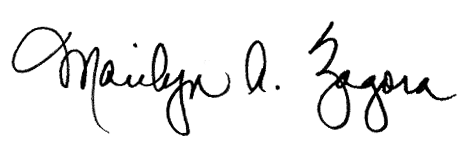 Marilyn A. Zagora